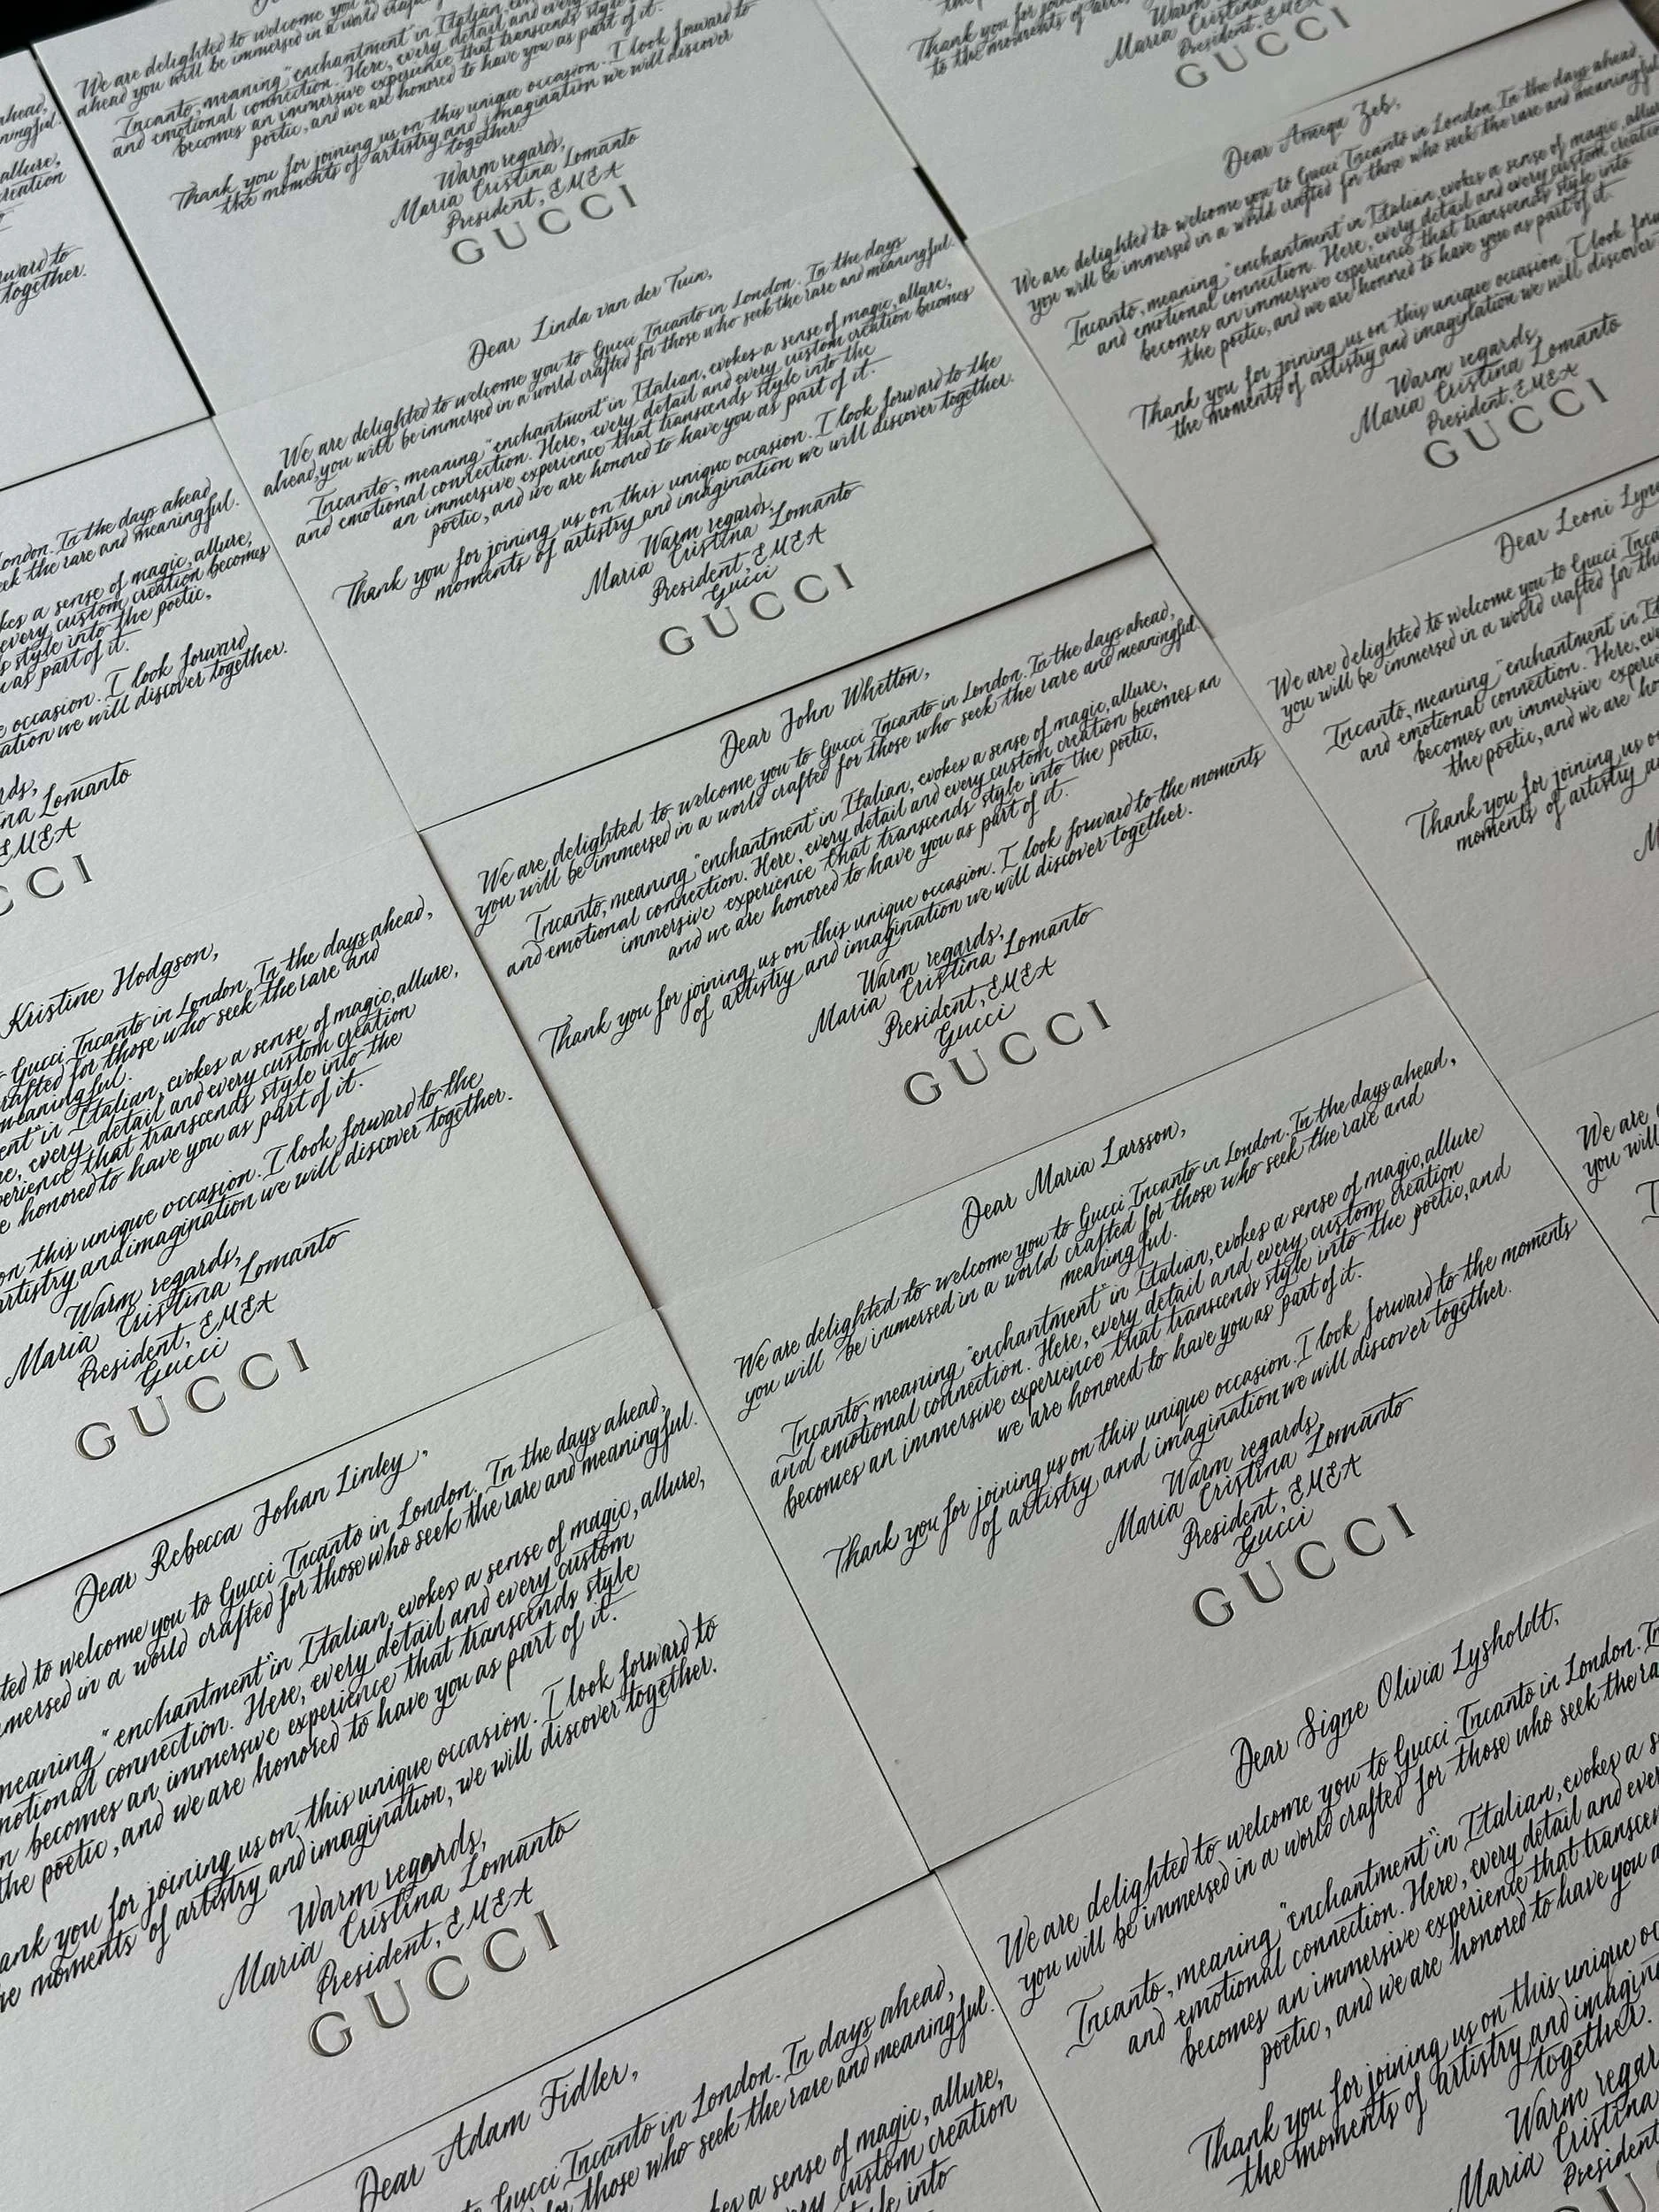 We are delighted to welcome you
ahead you will be immersed in a world
Incanto, meaning "enchantment" in Italian,
and emotional connection. Here, every detail and every
becomes an immersive experience that transcends style
poetic, and we are honored to have you as part of it.
Thank you for joining us on this unique occasion. I look forward to
the moments of artistry and imagination we will discover
together.
Warm regards,
Maria Cristina Lomanto
President, EMEA
GUCCI
Thank you for
to the moments of
Warm
Maria Cristina
President, EMEA
GUCCI
ahead,
allure,
creation
together.
Dear Linda van der Tuin,
We are delighted to welcome you to Gucci Incanto in London. In the days
ahead, you will be immersed in a world crafted for those who seek the rare and meaningful.
Incanto, meaning "enchantment" in Italian, evokes a sense of magic, allure,
and emotional connection. Here, every detail and every custom creation becomes
an immersive experience that transcends style into the
poetic, and we are honored to have you as part of it.
Thank you for joining us on this unique occasion. I look forward to the
moments of artistry and imagination we will discover together.
Warm regards,
Maria Cristina Lomanto
President, EMEA
Gucci
GUCCI
Dear Zeb,
We are delighted to welcome you to Gucci Incanto in London. In the days ahead,
you will be immersed in a world crafted for those who seek the rare and meaningful
Incanto, meaning "enchantment" in Italian, evokes a sense of magic,
and emotional connection. Here, every detail and every custom
becomes an immersive experience that transcends style into
the poetic, and we are honored to have you as part of it.
Thank you for joining us on this unique occasion. I look
the moments of artistry and imagination we will discover
Warm regards,
Maria Cristina Lomanto
President, EMEA
GUCCI
In the days ahead
the rare and meaningful.
a sense of magic, allure,
every custom creation becomes
style into the poetic,
as part of it.
occasion. I look forward
we will discover together.
Lomanto
EMEA
Dear John Whetton,
We are delighted to welcome you to Gucci Incanto in London. In the days ahead,
you will be immersed in a world crafted for those who seek the rare and meaningful
Incanto, meaning "enchantment" in Italian, evokes a sense of magic, allure,
and emotional connection. Here, every detail and every custom creation becomes an
immersive experience that transcends style into the poetic,
and we are honored to have you as part of it.
Thank you for joining us on this unique occasion. I look forward to the moments
of artistry and imagination we will discover together.
Warm regards,
Maria Cristina Lomanto
President, EMEA
Gucci
GUCCI
Dear Leoni
We are delighted to welcome you to Gucci
you will be immersed in a world crafted for
Incanto, meaning "enchantment" in
and emotional connection. Here,
becomes an immersive
the poetic, and we are
Thank you for joining us
moments of artistry
Kristine Hodgson,
Gucci Incanto in London. In the days ahead,
for those who seek the rare and
meaningful.
in Italian, evokes a sense of magic, allure,
every detail and every custom creation
that transcends style into the
honored to have you as part of it.
on this unique occasion. I look forward to the
artistry and imagination we will discover together.
Warm regards,
Maria Cristina Lomanto
President, EMEA
Gucci
GUCCI
Dear Maria Larsson,
We are delighted to welcome you to Gucci Incanto in London. In the days ahead,
you will be immersed in a world crafted for those who seek the rare and
meaningful.
Incanto, meaning "enchantment" in Italian, evokes a sense of magic, allure
and emotional connection. Here, every detail and every custom creation
becomes an immersive experience that transcends style into the poetic, and
we are honored to have you as part of it.
Thank you for joining us on this unique occasion. I look forward to the moments
of artistry and imagination we will discover together.
Warm regards,
Maria Cristina Lomanto
President, EMEA
Gucci
GUCCI
We are
you will
Dear Rebecca Johan Linley,
to welcome you to Gucci Incanto in London. In the days ahead,
in a world crafted for those who seek the rare and meaningful.
meaning "enchantment" in Italian, evokes a sense of magic, allure,
connection. Here, every detail and every custom
becomes an immersive experience that transcends style
the poetic, and we are honored to have you as part of it.
you for joining us on this unique occasion. I look forward to
moments of artistry and imagination, we will discover together.
Warm regards,
Maria Cristina Lomanto
President, EMEA
GUCCI
Dear Signe Olivia Lysholdt,
We are delighted to welcome you to Gucci Incanto in London.
you will be immersed in a world crafted for those who seek the
Incanto, meaning "enchantment" in Italian, evokes a
and emotional connection. Here, every detail and
becomes an immersive experience that
poetic, and we are honored to have you
Thank you for joining us on this unique
the moments of artistry and
together.
Warm
Maria Cristina
President
Dear Adam Fidler,
Gucci Incanto in London. In days ahead,
those who seek the rare and meaningful.
a sense of magic, allure,
custom creation
into